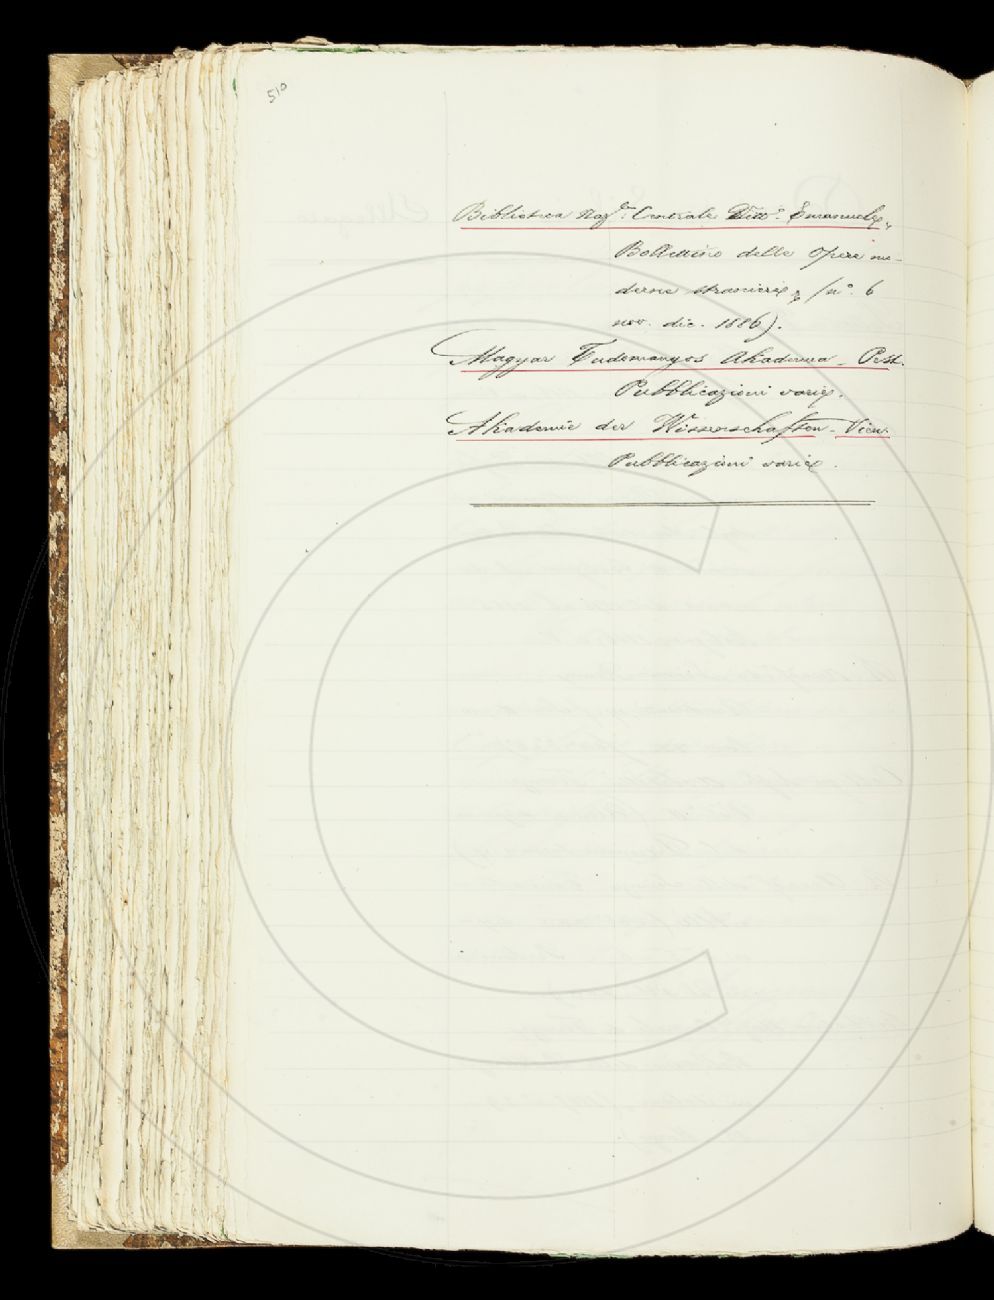 510
Biblioteca Naz.le Centrale Vitto. Emanuele,
Bollettino delle opere mo-
derne straniere, (n°. 6
nov. dic. 1886).
Magyar Tudomanyos Akademia - Pest.
Pubblicazioni varie.
Akademie der Wissenschaften - Vien.
Pubblicazioni varie.